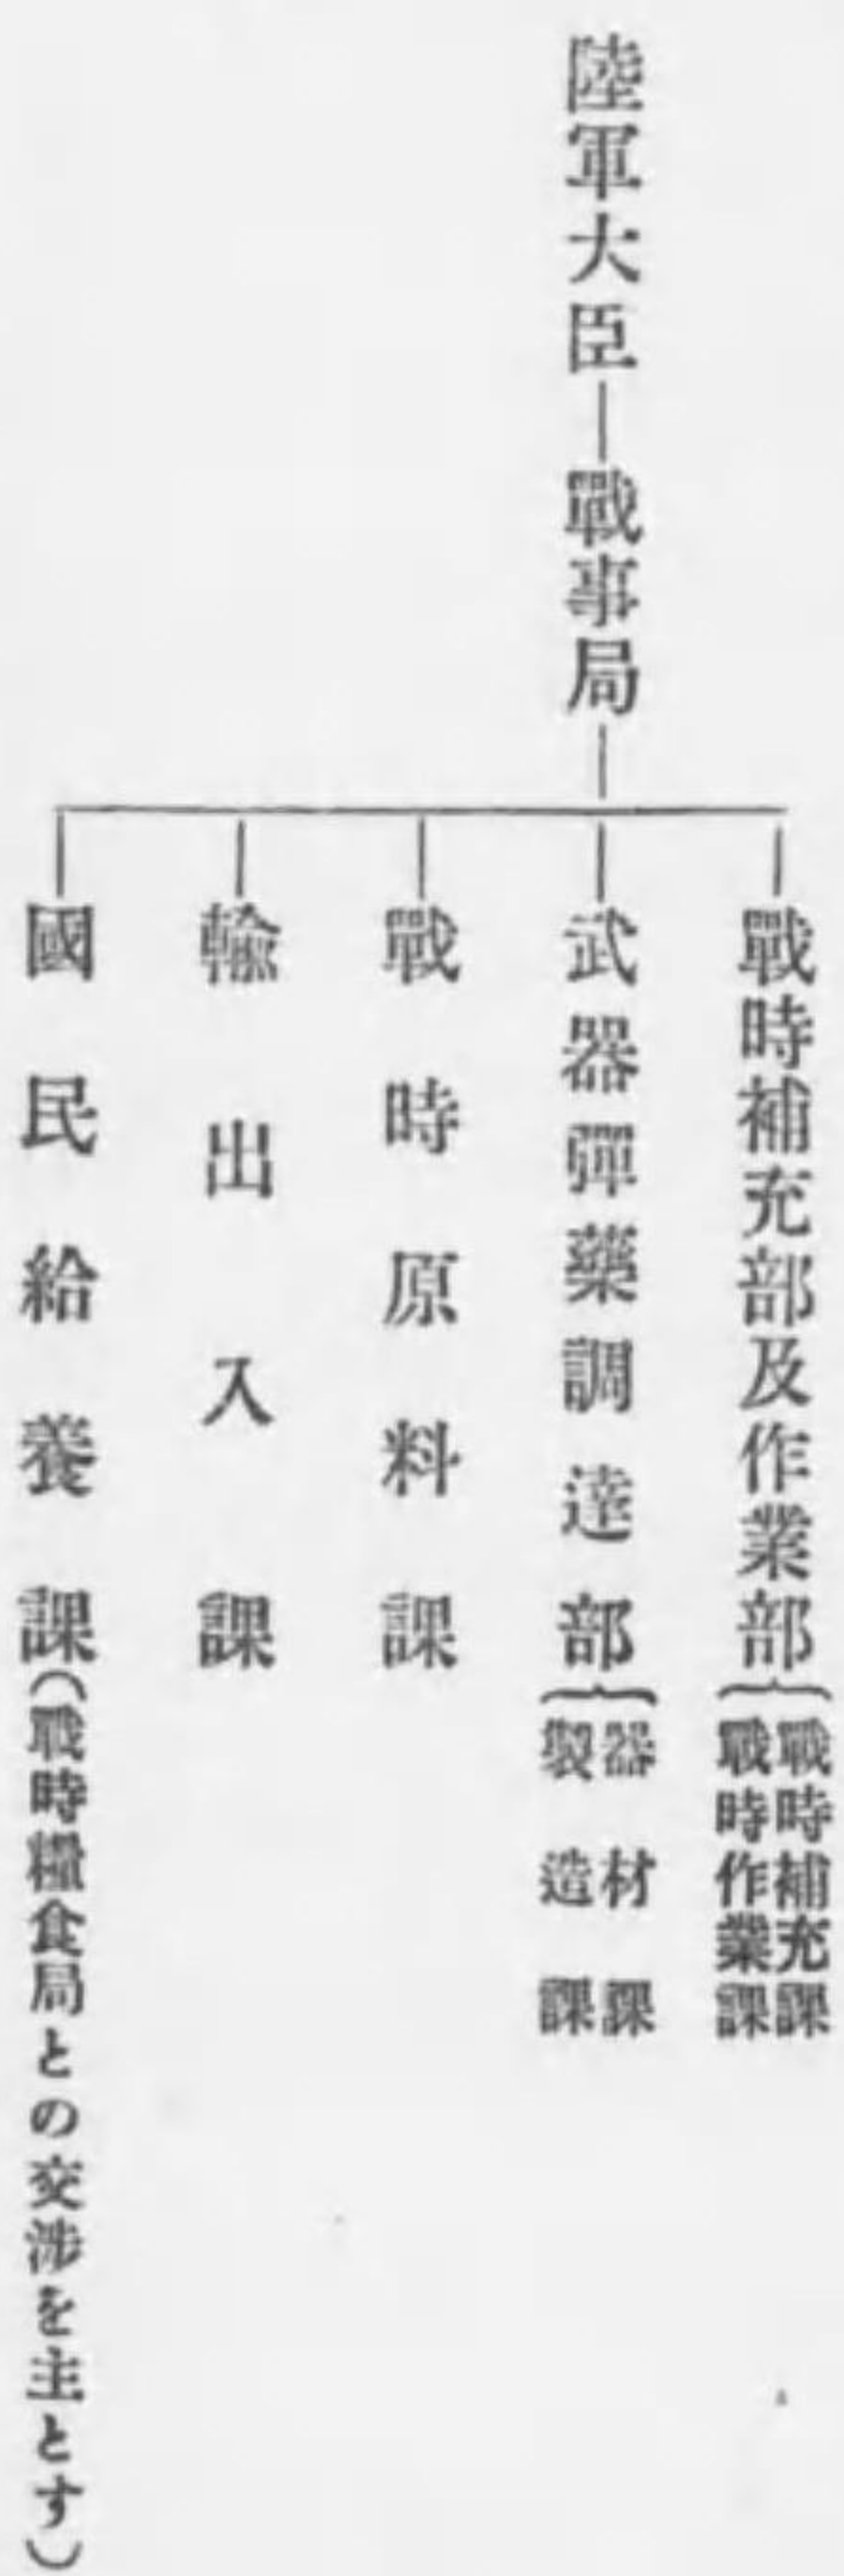 陸軍大臣─戰事局
戰時補充部及作業部
戰時補充課
戰時作業課
武器彈藥調達部
器材課
製造課
戰時原料課
輸出入課
國民給養課(戰時糧食局との交渉を主とす)